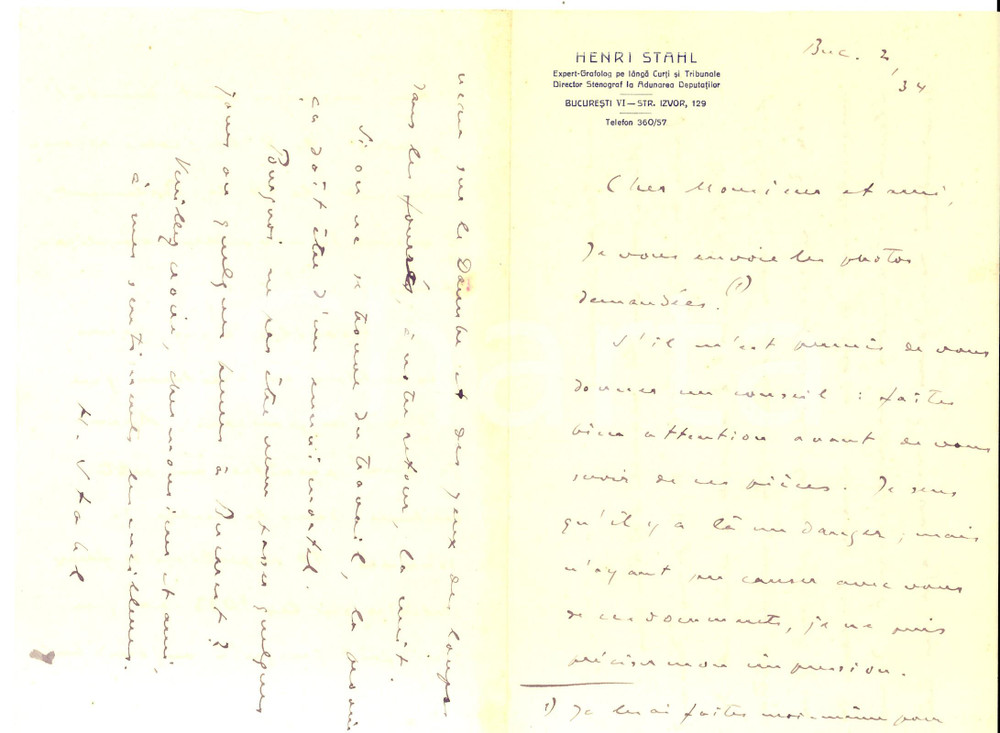 HENRI STAHL
Expert-Grafolog pe lângă Curți și Tribunale
Director Stenograf la Adunarea Deputaților
BUCUREȘTI VI — STR. IZVOR, 129
Telefon 360/57
Buc. 2, 34
Cher Monsieur et ami,
Je vous envoie les photos
demandées. (1)
S'il m'est permis de vous
donner un conseil : faites
bien attention avant de vous
servir de ces pièces. Je sens
qu'il y a là un danger, mais
n'ayant pu causer avec vous
de ces documents, je ne puis
préciser mon impression.
1) Je les ai faites moi-même pour
sur le Danube et des yeux des loups
dans les fourrés, à notre retour, la nuit.
Si on ne se trouve du travail, la
ça doit être d'un ennui mortel.
Pourquoi ne pas être venu passer quelques
jours ou quelques heures à Bucarest ?
Veuillez croire, cher monsieur et ami,
à mes sentiments les meilleurs.
H. Stahl